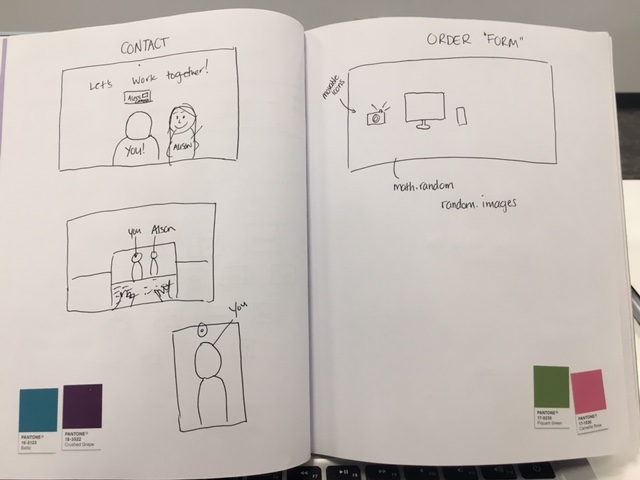 CONTACT
Let's work together!
YOU!
ALISON
you Alison
You
PANTONE®
Baltic
PANTONE®
Crushed Grape
ORDER "FORM"
movable
icons
math.random
random.images
PANTONE®
Piquant Green
PANTONE®
Camellia Rose